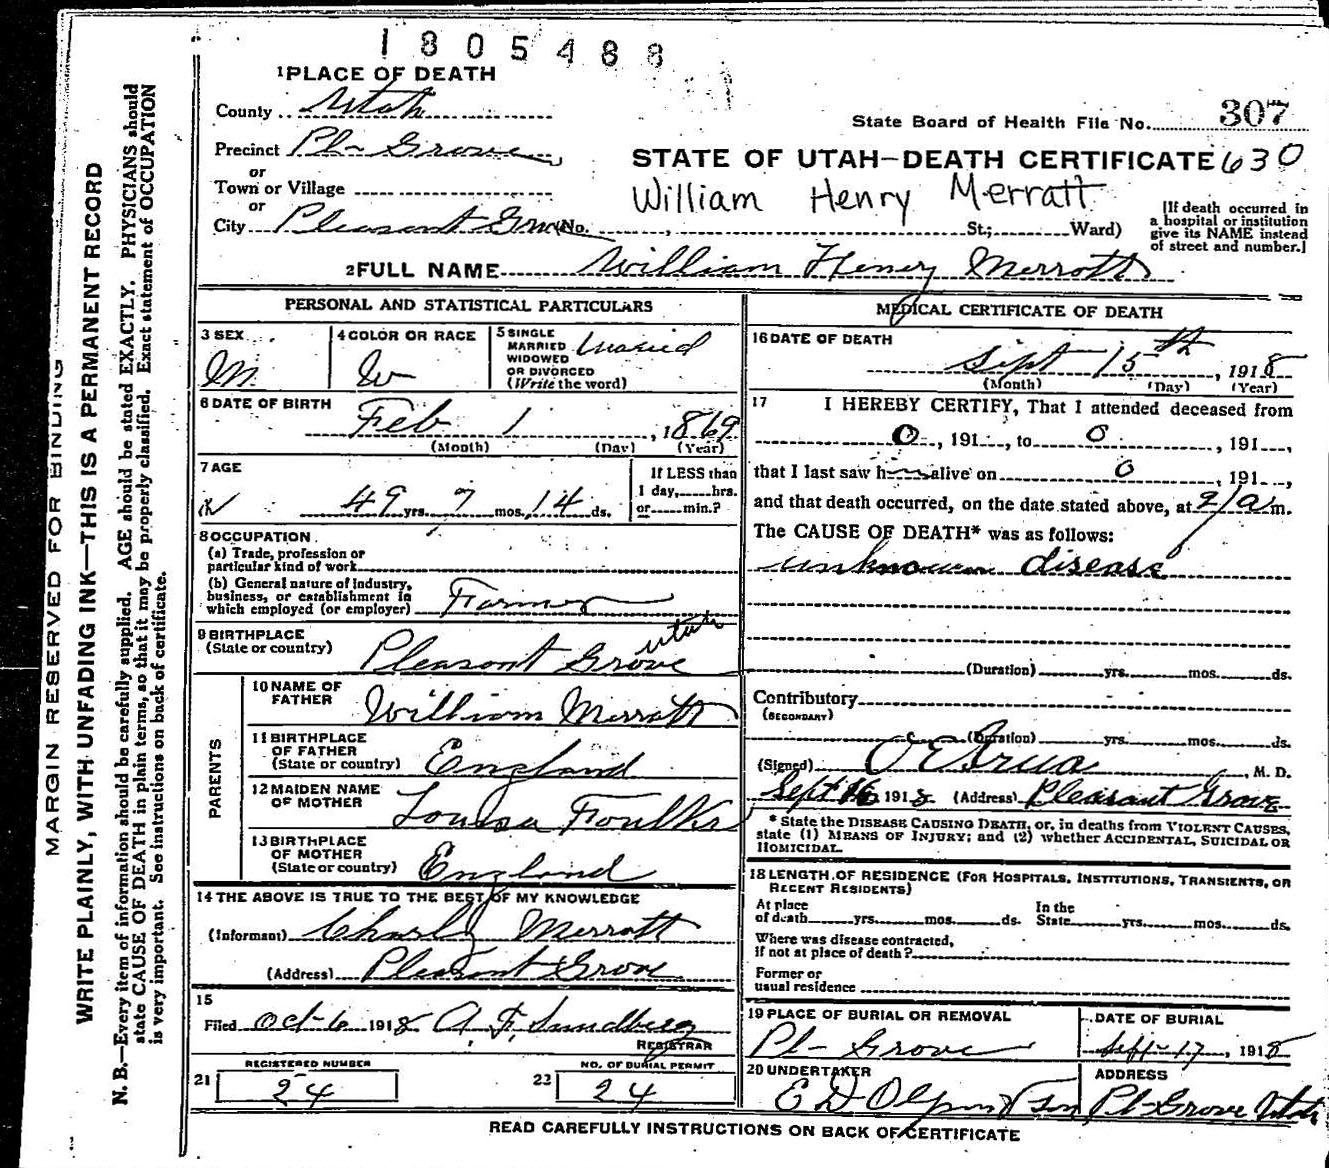 1805488
1 PLACE OF DEATH
County Utah
State Board of Health File No. 307
Precinct Pl- Grove
STATE OF UTAH—DEATH CERTIFICATE 630
or
Town or Village
William Henry Merratt
or
City Pleasant Grove No. St.; Ward)
[If death occurred in
a hospital or institution
give its NAME instead
of street and number.]
2 FULL NAME William Henry Merrott
PERSONAL AND STATISTICAL PARTICULARS
3 SEX M
4 COLOR OR RACE W
5 SINGLE
MARRIED
WIDOWED
OR DIVORCED
(Write the word) Married
6 DATE OF BIRTH
Feb 1, 1869
(Month) (Day) (Year)
7 AGE
49 yrs. 7 mos. 14 ds.
If LESS than
1 day, hrs.
or min.?
8 OCCUPATION
(a) Trade, profession or
particular kind of work
(b) General nature of Industry,
business, or establishment in
which employed (or employer) Farmer
9 BIRTHPLACE
(State or country) Pleasant Grove Utah
PARENTS
10 NAME OF
FATHER William Merratt
11 BIRTHPLACE
OF FATHER
(State or country) England
12 MAIDEN NAME
OF MOTHER Louisa Foulks
13 BIRTHPLACE
OF MOTHER
(State or country) England
14 THE ABOVE IS TRUE TO THE BEST OF MY KNOWLEDGE
(Informant) Merrott
(Address) Pleasant Grove
15
Filed Oct 6 1918 A. F. Sundberg
REGISTRAR
REGISTERED NUMBER
21 24
NO. OF BURIAL PERMIT
22 24
MEDICAL CERTIFICATE OF DEATH
16 DATE OF DEATH
Sept 15th, 1918
(Month) (Day) (Year)
17 I HEREBY CERTIFY, That I attended deceased from
0, 191, to 0, 191,
that I last saw h alive on 0, 191,
and that death occurred, on the date stated above, at 2/a m.
The CAUSE OF DEATH* was as follows:
unknown disease
(Duration) yrs. mos. ds.
Contributory
(SECONDARY)
(Duration) yrs. mos. ds.
(Signed) O E Grua, M. D.
Sept 16 1918 (Address) Pleasant Grove
* State the DISEASE CAUSING DEATH, or, in deaths from VIOLENT CAUSES,
state (1) MEANS OF INJURY; and (2) whether ACCIDENTAL, SUICIDAL OR
HOMICIDAL.
18 LENGTH OF RESIDENCE (FOR HOSPITALS, INSTITUTIONS, TRANSIENTS, OR
RECENT RESIDENTS)
At place
of death yrs. mos. ds.
In the
State yrs. mos. ds.
Where was disease contracted,
if not at place of death?
Former or
usual residence
19 PLACE OF BURIAL OR REMOVAL
Pl- Grove
DATE OF BURIAL
Sept-17, 1918
20 UNDERTAKER
E D Olpin & Son
ADDRESS
Pl-Grove Utah
READ CAREFULLY INSTRUCTIONS ON BACK OF CERTIFICATE
MARGIN RESERVED FOR BINDING
WRITE PLAINLY, WITH UNFADING INK—THIS IS A PERMANENT RECORD
N. B.—Every item of information should be carefully supplied. AGE should be stated EXACTLY. PHYSICIANS should
state CAUSE OF DEATH in plain terms, so that it may be properly classified. Exact statement of OCCUPATION
is very important. See instructions on back of certificate.